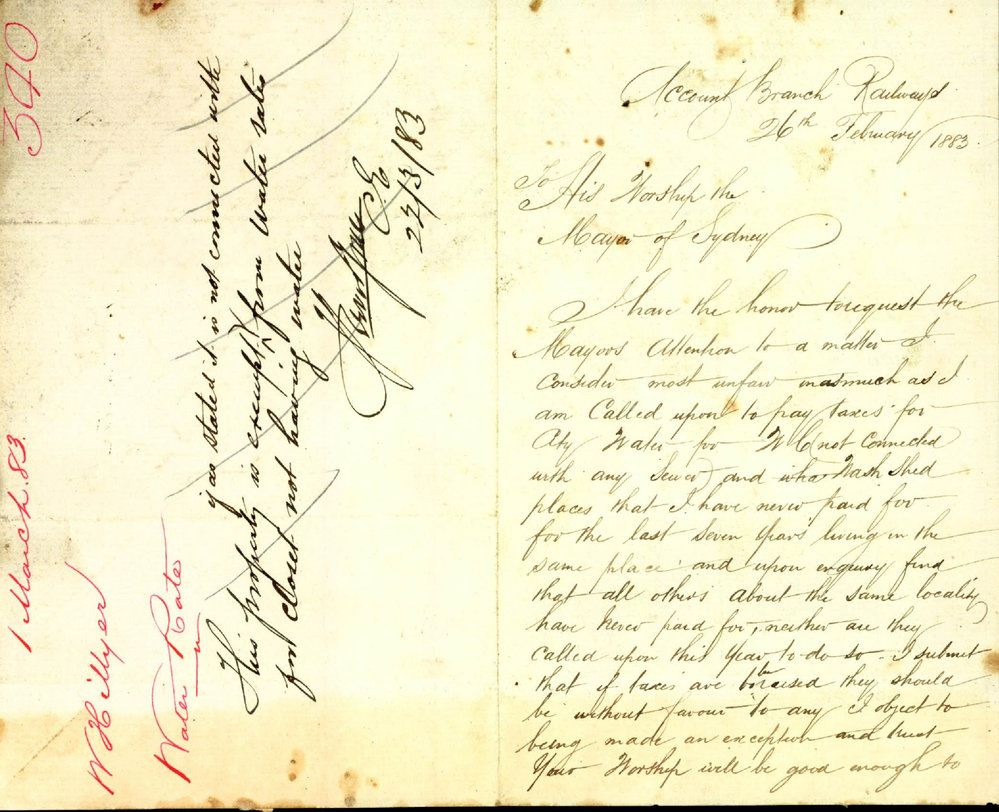 540
1 March. 83.
W Hillyer
Water Rates
if as stated it is not connected with
This property is exempt from water rates
for closet not having water
C. E.
22/3/83
Account Branch Railways
26th February 1883
To His Worship the
Mayor of Sydney
I have the honor to request the
Mayors Attention to a matter I
Consider most unfair inasmuch as I
am Called upon to pay taxes for
City Water for W C (not Connected
with any Sewer) and Wash Shed
places that I have never paid for
for the last seven Years living in the
same place and upon enquiry find
that all others about the same locality
have Never paid for, neither are they
Called upon this Year to do so. I submit
that if taxes are to be raised they should
be without favour to any I object to
being made an exception and trust
Your Worship will be good enough to